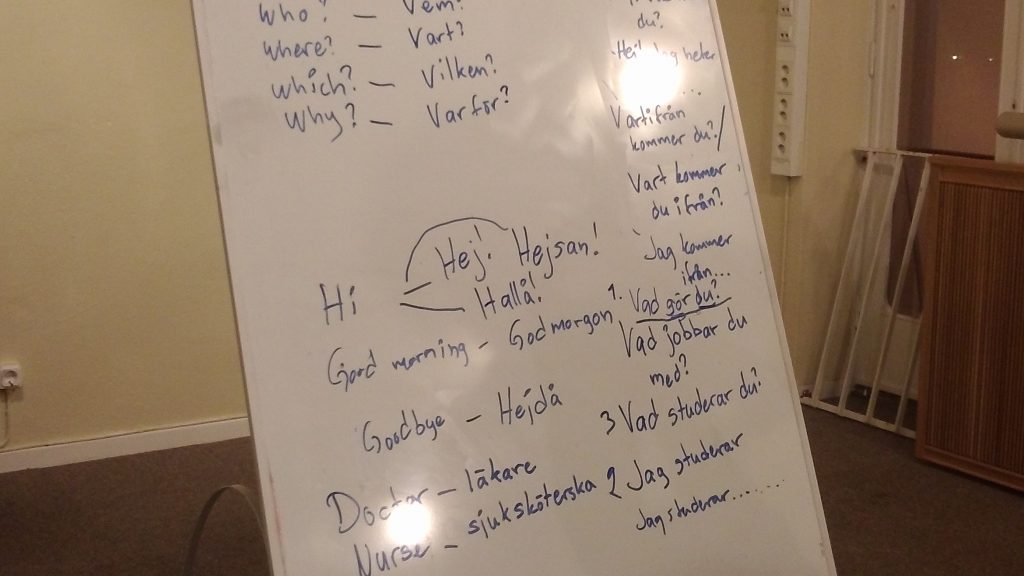 who? – Vem?
where? – Vart?
which? – Vilken?
Why? – Varför?
Hi
Hej! Hejsan!
Hallå!
Good morning – Godmorgon
Goodbye – Hejdå
Doctor – läkare
Nurse – sjuksköterska
du?
heter
...
Vartifrån
kommer du?/
Vart kommer
du ifrån?
Jag kommer
ifrån...
1. Vad gör du?
Vad jobbar du
med?
3 Vad studerar du?
2 Jag studerar
Jag studerar........